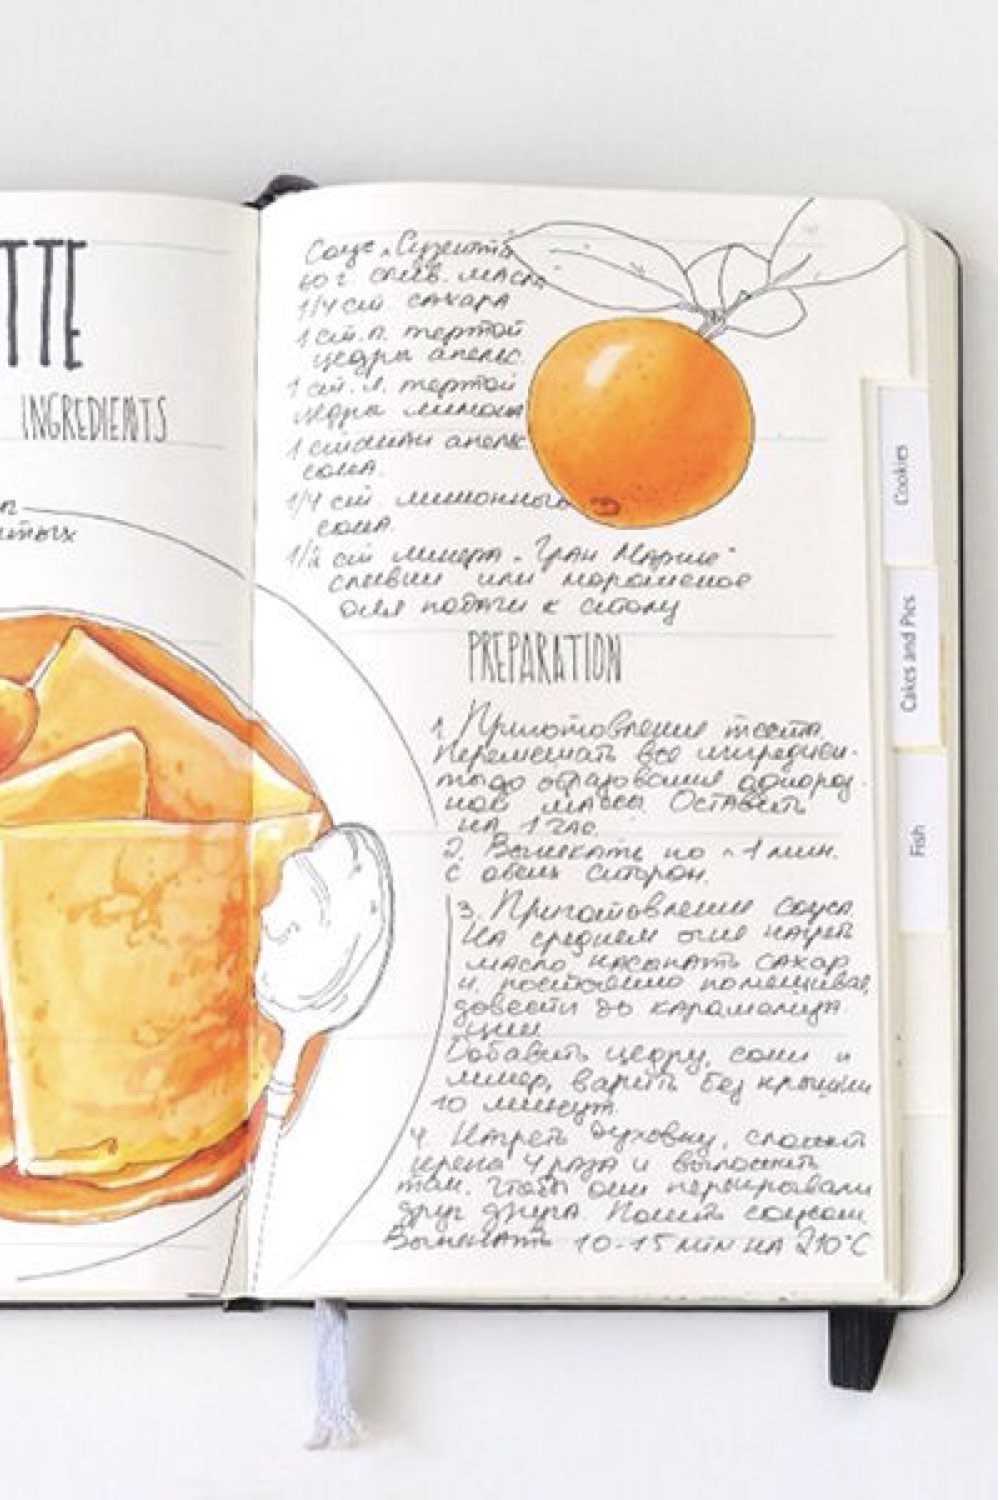 TTE
INGREDIENTS
Соус „Сузетта
60 г. слив. масла
1/4 ст сахара
1 ст.л. тертой
цедры апельс
1 ст. л. тертой
цедры лимона
1 стакан апельс
сока.
1/4 ст. лимонного
сока.
1/2 ст ликера „Гран Марнье"
сливки или мороженое
для подачи к столу
PREPARATION
1. Приготовление теста.
Перемешать все ингредиен-
ты до образования однород-
ной массы. Оставить
на 1 час.
2. Выпекать по ~1 мин.
с обеих сторон.
3. Приготовление соуса
На среднем огне нагреть
масло насыпать сахар
и, постоянно помешивая,
довести до карамелиза
ции
Добавить цедру, соки и
ликер, варить без крышки
10 минут.
4. Нагреть духовку, сложить
крепа 4 раза и выложить
так, чтобы они перекрывали
друг друга. Полить соусом
Выпекать 10-15 мин на 210°С
Cookies
Cakes and Pies
Fish